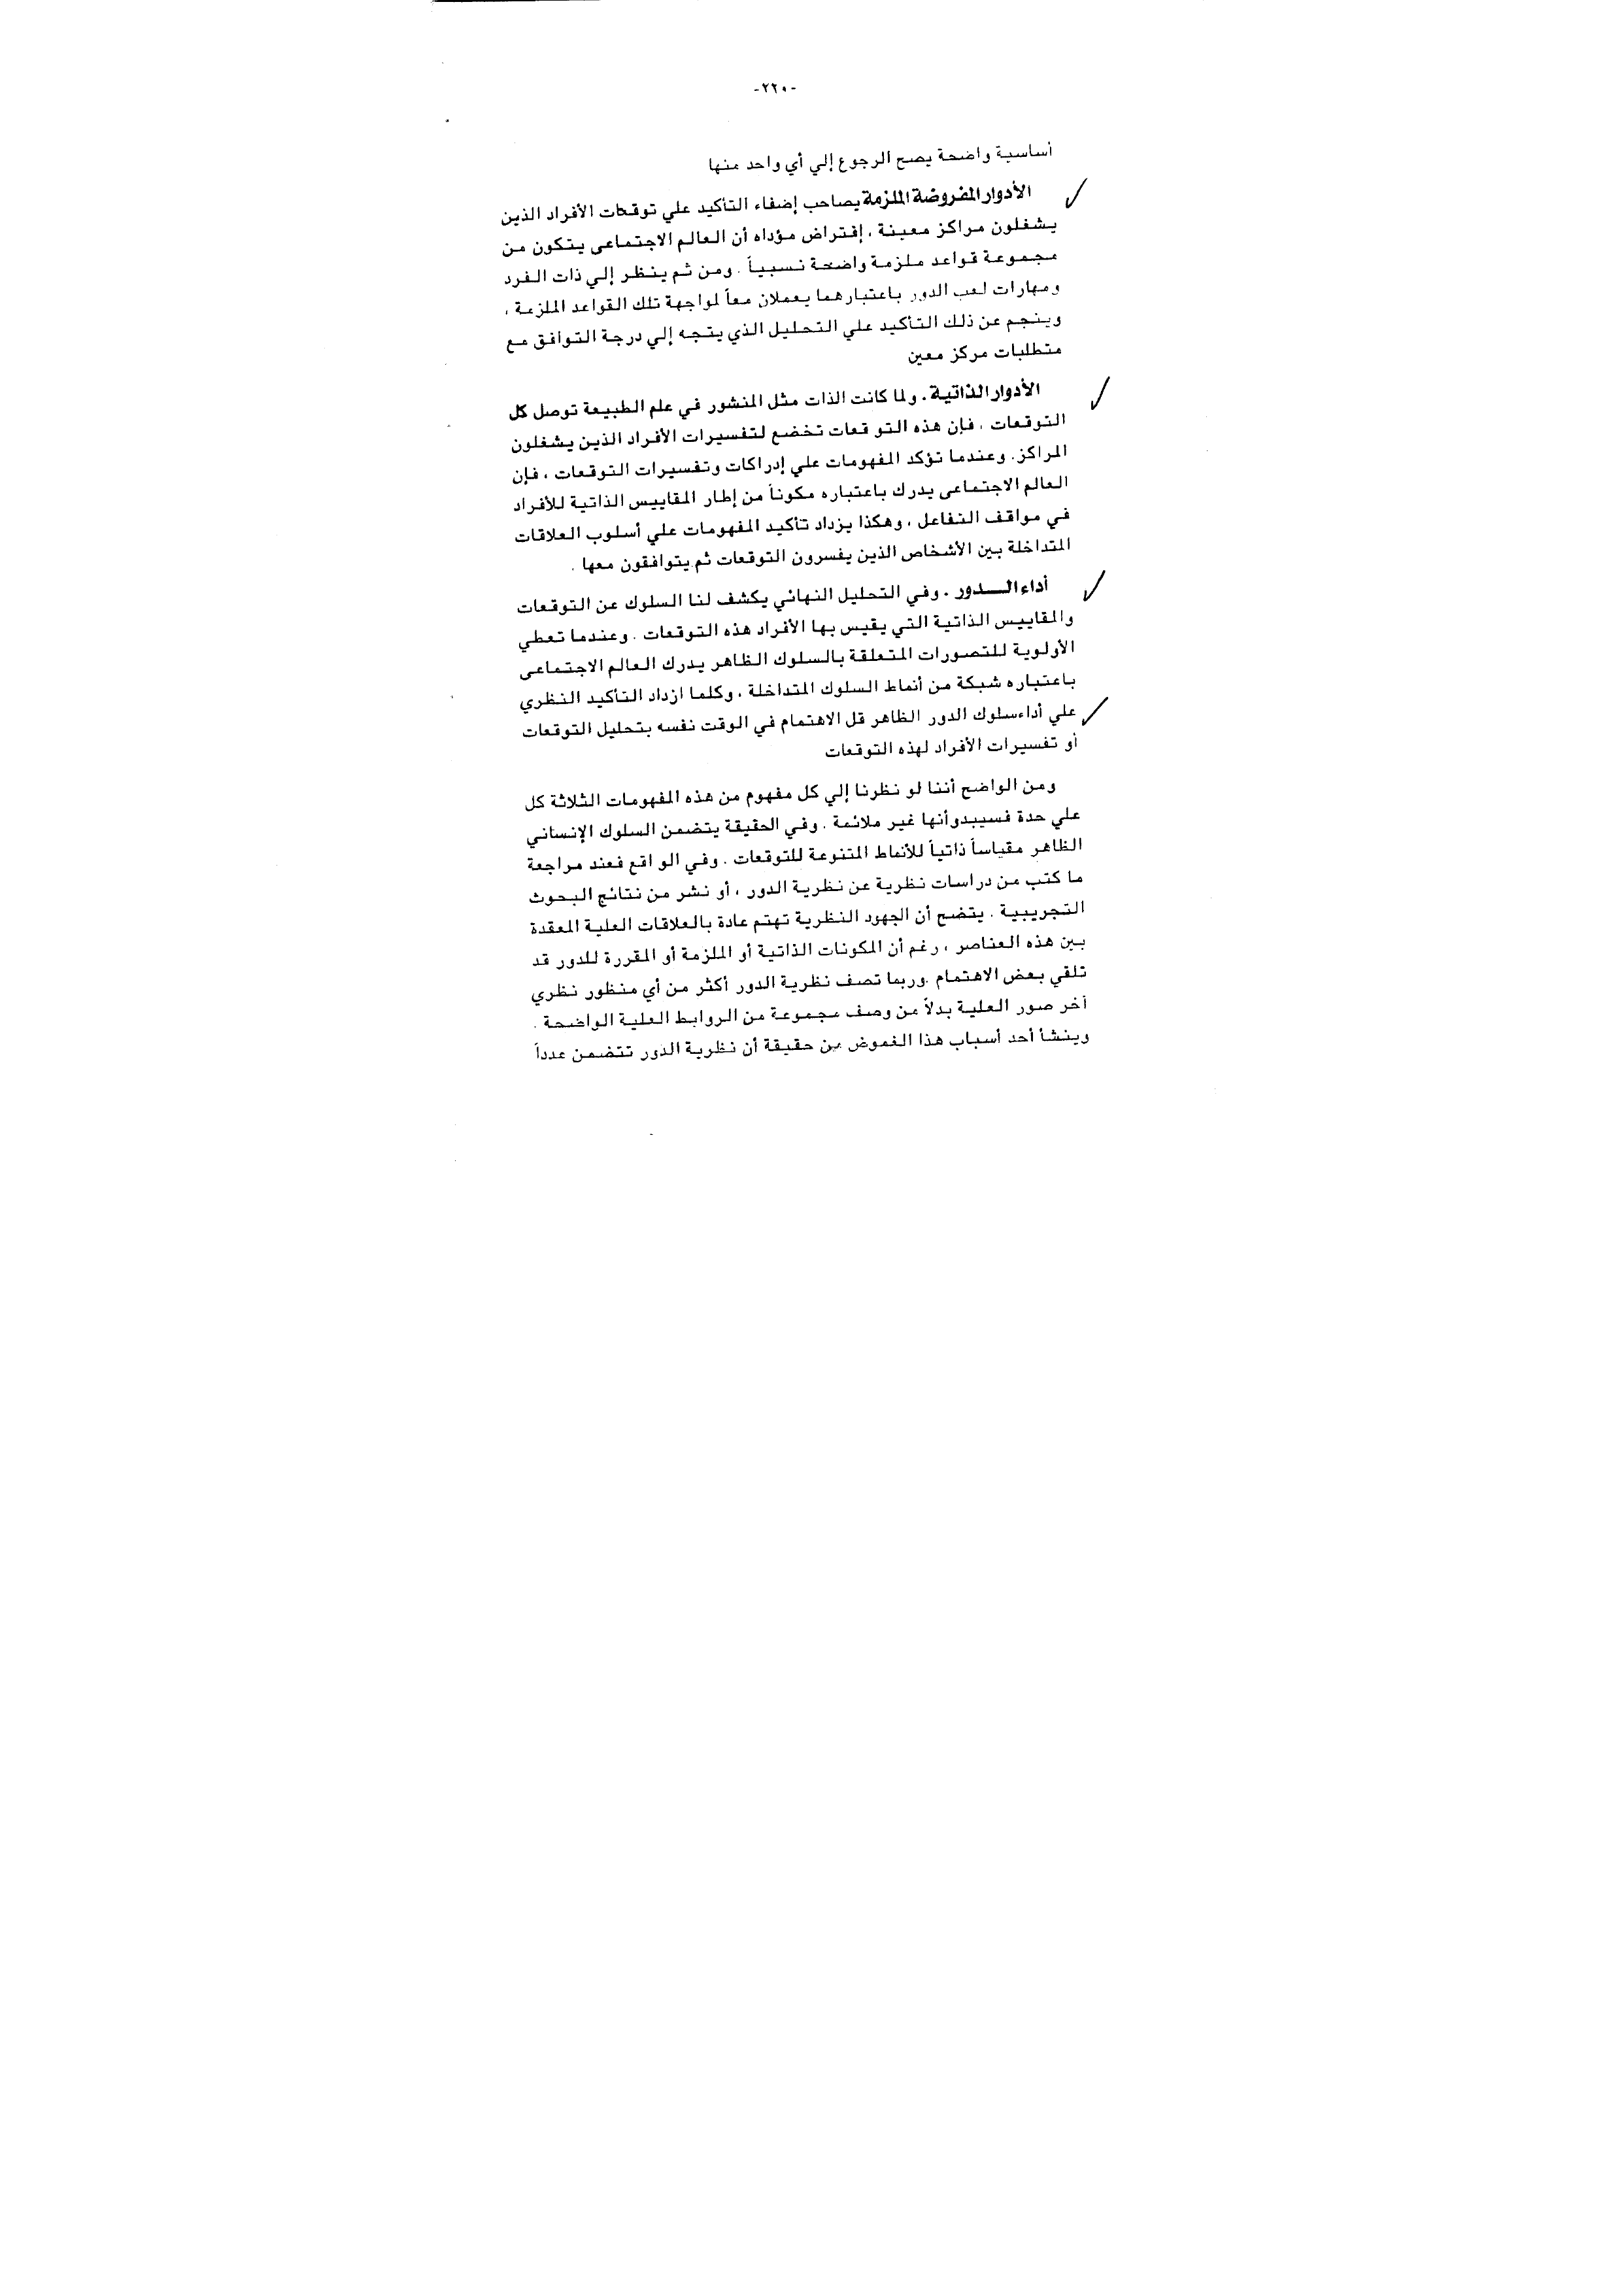 -٢٢٠-
أساسية واضحة يصح الرجوع إلي أي واحد منها
الأدوار المفروضة الملزمة يصاحب إضفاء التأكيد علي توقعات الأفراد الذين
يشغلون مراكز معينة ، إفتراض مؤداه أن العالم الاجتماعى يتكون من
مجموعة قواعد ملزمة واضحة نسبياً . ومن ثم ينظر إلي ذات الفرد
ومهارات لعب الدور باعتبارهما يعملان معاً لمواجهة تلك القواعد الملزمة ،
وينجم عن ذلك التأكيد علي التحليل الذي يتجه إلي درجة التوافق مع
متطلبات مركز معين
الأدوار الذاتية . ولما كانت الذات مثل المنشور في علم الطبيعة توصل كل
التوقعات ، فإن هذه التو قعات تخضع لتفسيرات الأفراد الذين يشغلون
المراكز. وعندما تؤكد المفهومات علي إدراكات وتفسيرات التوقعات ، فإن
العالم الاجتماعى يدرك باعتباره مكوناً من إطار المقاييس الذاتية للأفراد
في مواقف التفاعل ، وهكذا يزداد تأكيد المفهومات علي أسلوب العلاقات
المتداخلة بين الأشخاص الذين يفسرون التوقعات ثم يتوافقون معها .
أداء الـــدور . وفي التحليل النهائي يكشف لنا السلوك عن التوقعات
والمقاييس الذاتية التي يقيس بها الأفراد هذه التوقعات . وعندما تعطي
الأولوية للتصورات المتعلقة بالسلوك الظاهر يدرك العالم الاجتماعى
باعتباره شبكة من أنماط السلوك المتداخلة ، وكلما ازداد التأكيد النظري
علي أداءسلوك الدور الظاهر قل الاهتمام في الوقت نفسه بتحليل التوقعات
أو تفسيرات الأفراد لهذه التوقعات
ومن الواضح أننا لو نظرنا إلي كل مفهوم من هذه المفهومات الثلاثة كل
علي حدة فسيبدوأنها غير ملائمة . وفي الحقيقة يتضمن السلوك الإنساني
الظاهر مقياساً ذاتياً للأنماط المتنوعة للتوقعات . وفي الو اقع فعند مراجعة
ما كتب من دراسات نظرية عن نظرية الدور ، أو نشر من نتائج البحوث
التجريبية . يتضح أن الجهود النظرية تهتم عادة بالعلاقات العلية المعقدة
بين هذه العناصر ، رغم أن المكونات الذاتية أو الملزمة أو المقررة للدور قد
تلقي بعض الاهتمام .وربما تصف نظرية الدور أكثر من أي منظور نظري
آخر صور العلية بدلاً من وصف مجموعة من الروابط العلية الواضحة .
وينشأ أحد أسباب هذا الغموض من حقيقة أن نظرية الدور تتضمن عدداً